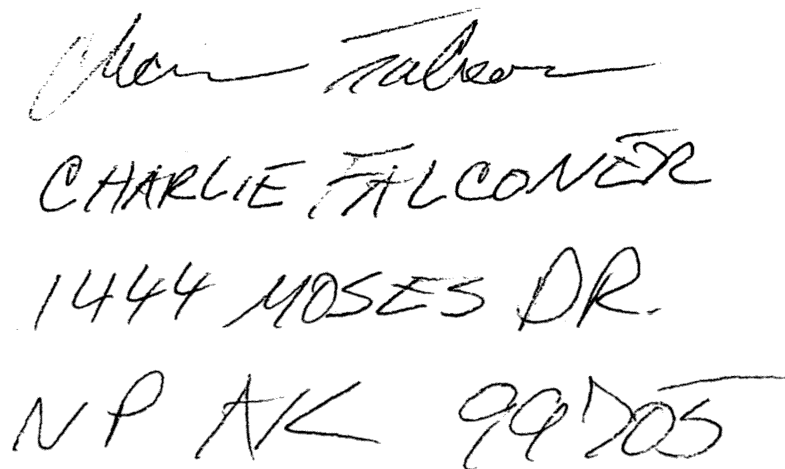 Charlie Falconer
CHARLIE FALCONER
1444 MOSES DR.
NP AK 99705